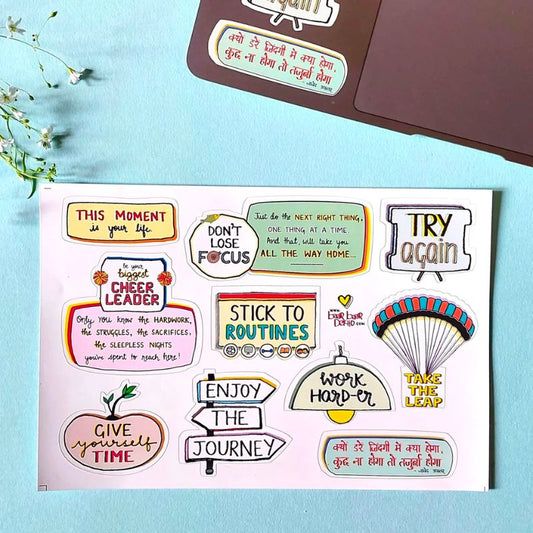 again
क्यों डरे ज़िंदगी में क्या होगा,
कुछ ना होगा तो तजुर्बा होगा
- जावेद अख़्तर
THIS MOMENT
is your life.
DON'T
LOSE
FOCUS
Just do the NEXT RIGHT THING,
ONE THING AT A TIME.
And that, will take you
ALL THE WAY HOME...
TRY
again
be your
biggest
CHEER
LEADER
Only you know the HARDWORK,
the STRUGGLES, the SACRIFICES,
the SLEEPLESS NIGHTS
you've spent to reach here!
STICK TO
ROUTINES
www.
.com
WORK
HARD-ER
TAKE
THE
LEAP
GIVE
yourself
TIME
ENJOY
THE
JOURNEY
क्यों डरे ज़िंदगी में क्या होगा,
कुछ ना होगा तो तजुर्बा होगा
- जावेद अख़्तर